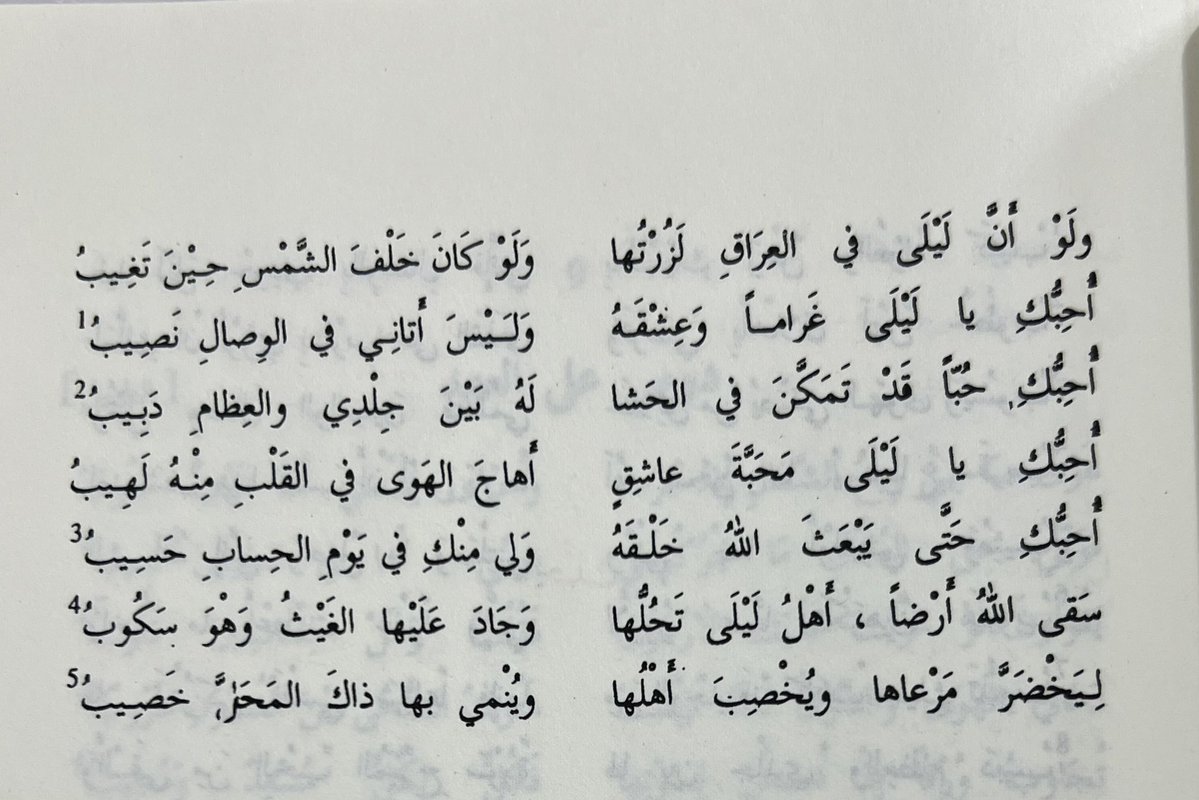 ولَوْ أَنَّ لَيْلَى في العِرَاقِ لَزُرْتُها وَلَوْ كَانَ خَلْفَ الشَّمْسِ حِيْنَ تَغِيبُ
أُحِبُّكِ يا لَيْلَى غَراماً وَعِشْقَهُ وَلَيْسَ أَتانِي في الوِصالِ نَصِيبُ1
أُحِبُّكِ حُبّاً قَدْ تَمَكَّنَ في الحَشا لَهُ بَيْنَ جِلْدِي والعِظامِ دَبِيبُ2
أُحِبُّكِ يا لَيْلَى مَحَبَّةَ عاشِقٍ أَهاجَ الهَوى في القَلْبِ مِنْهُ لَهِيبُ
أُحِبُّكِ حَتَّى يَبْعَثَ اللهُ خَلْقَهُ وَلي مِنْكِ في يَوْمِ الحِسابِ حَسِيبُ3
سَقى اللهُ أَرْضاً ، أَهْلُ لَيْلَى تَحُلُّها وَجَادَ عَلَيْها الغَيْثُ وَهْوَ سَكُوبُ4
لِيَخْضَرَّ مَرْعاها ويُخْصِبَ أَهْلُها ويُنْمي بها ذاكَ خَصِيبُ5